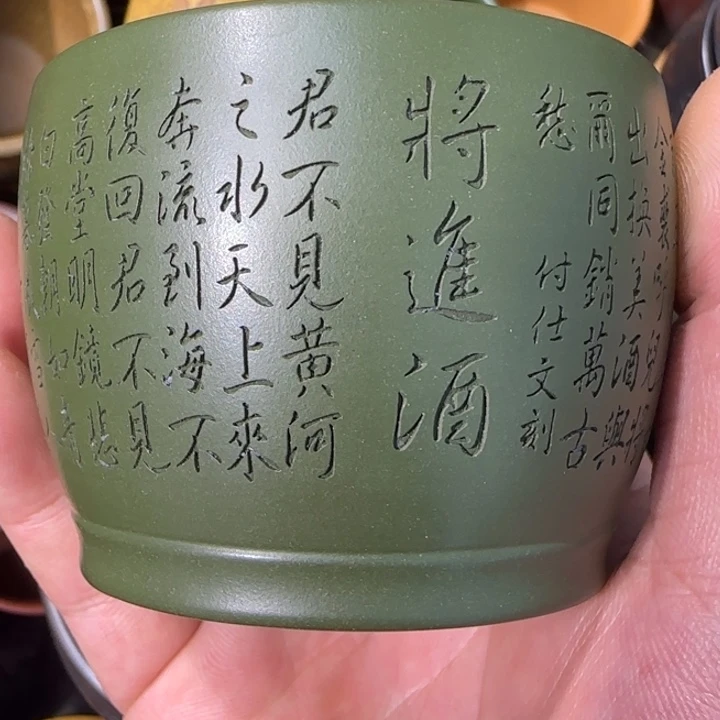 金裘呼兒將
出換美酒與
爾同銷萬古
愁
付仕文刻
將進酒
君不見黃河
之水天上來
奔流到海不
復回君不見
高堂明鏡悲
白發朝如青